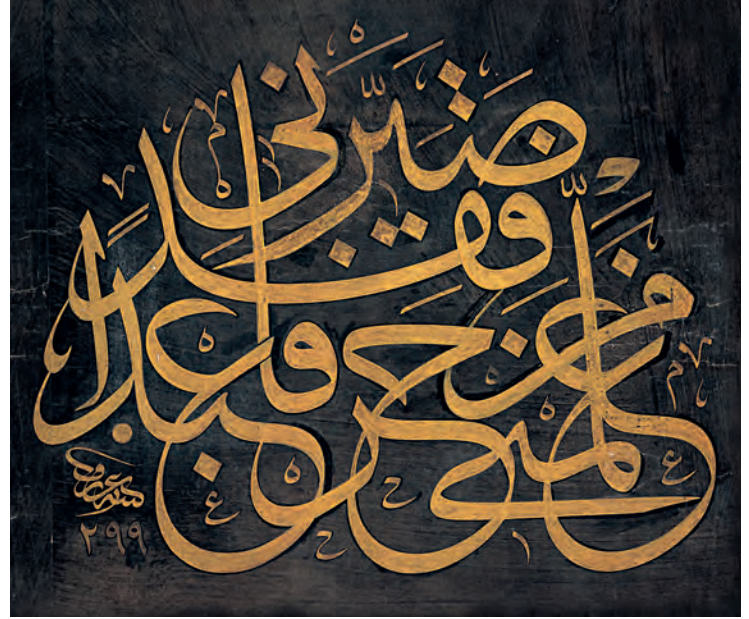 من علّمني حرفاً فقد صيّرني عبداً
٢٩٩